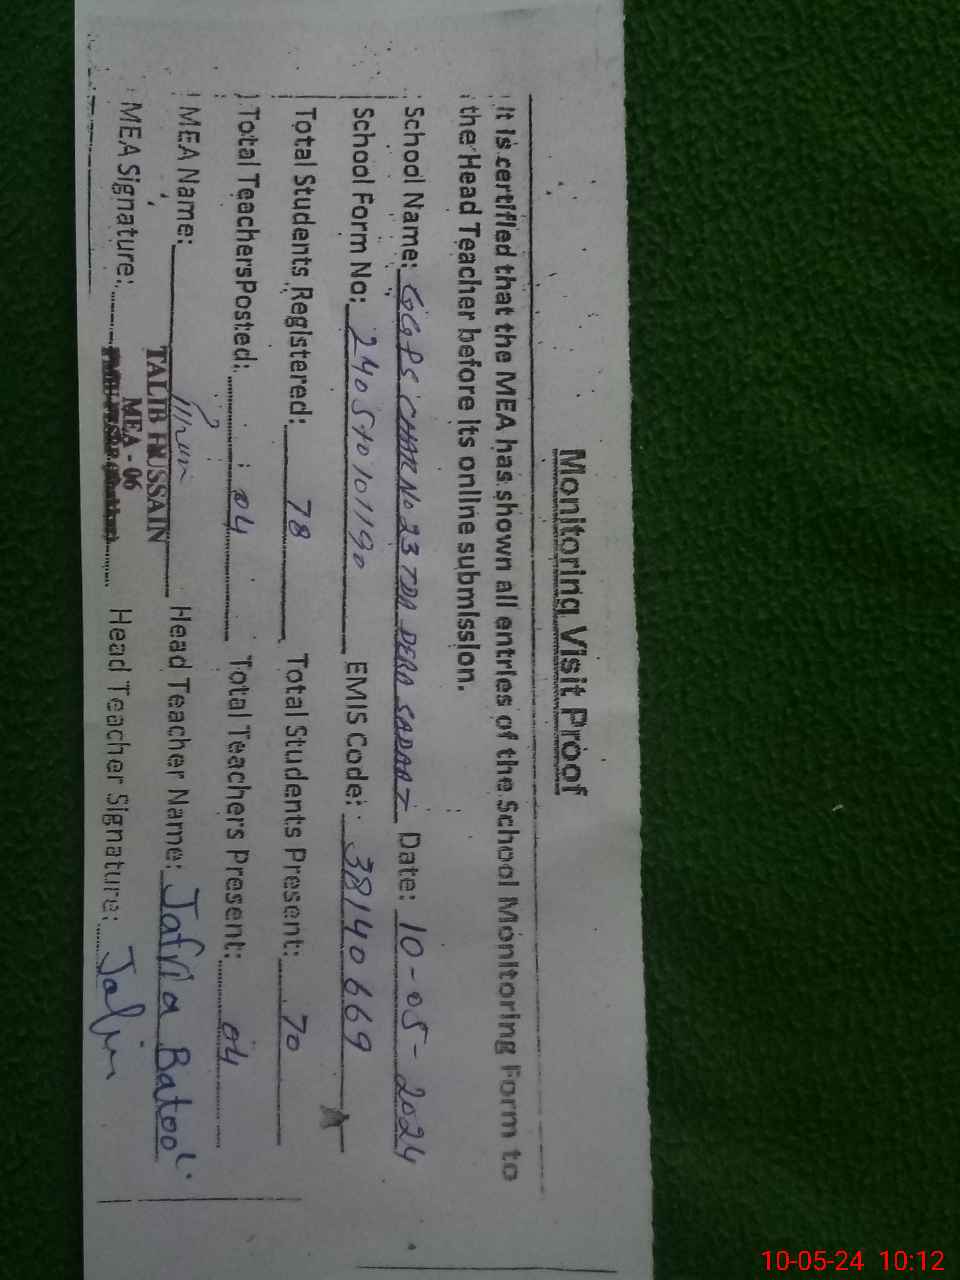 Monitoring Visit Proof
It is certified that the MEA has shown all entries of the School Monitoring Form to
the Head Teacher before its online submission.
School Name: GGPS CHAK No 23 TDA DERA SADAAT Date: 10-05-2024
School Form No: EMIS Code: 38140669
Total Students Registered: 78 Total Students Present: 70
Total TeachersPosted: 04 Total Teachers Present: 04
MEA Name: TALIB HUSSAIN Head Teacher Name: Jafria Batool
MEA Signature: MEA - 06 Head Teacher Signature:
10-05-24 10:12